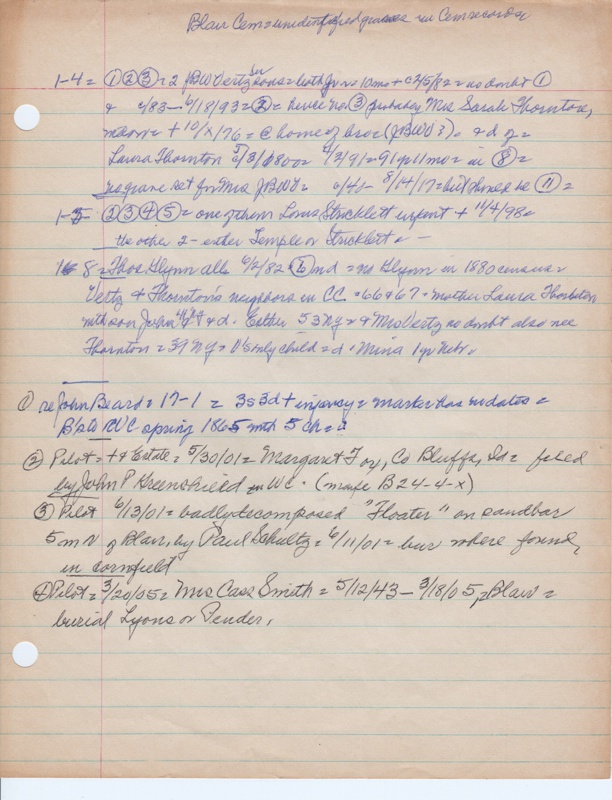 Blair Cem = unidentified graves in Cem records
1-4 = ① ② ③ = 2 JBW Vertz sons = both Jr = 10mo + c 2/5/82 = no doubt ①
& c/83 - 6/18/93 = ② = hence no ③ probably Mrs Sarah Thornton,
+ 10/x/76 = @ home of bro (JBWV?) = & d of =
Laura Thornton 5/3/1800 = 4/2/91 = 91 yr 11mo = in ⑧ =
no grave set for Mrs JBWV = c/40 - 8/14/17 = but should be ⑪ =
1-5 ② ③ ④ ⑤ = one of them Louis Stricklett infant + 11/4/98 =
the other 2 - either Temple or Stricklett = —
8 = Thos Glynn alb 6/2/82 ⑥ md = no Glynn in 1880 census =
Vertz & Thornton's neighbors in CC = 66 & 67 = mother Laura Thornton
with son John & d. Esther 53 NY = & Mrs Vertz no doubt also nee
Thornton = 39 NY = V's only child = d. Mina 1 yr Nebr.
① re John Beard = 17-1 = 3s 3d + infancy = marker has no dates =
B's to WC spring 1865 with 5 ch = ?
② Pilot = + & Estate = 5/30/01 = Margaret Foy, Co Bluffs, Ia = filed
by John P Greenshield in WC. (maybe B 24-4-x)
③ Pilot 6/13/01 = badly decomposed "Floater" on sandbar
5 m N of Blair, by Paul Schultz = 6/11/01 = bur where found,
in cornfield
④ Pilot = 3/20/05 = Mrs Cass Smith = 5/12/43 - 3/18/05, Blair =
burial Lyons or Pender.